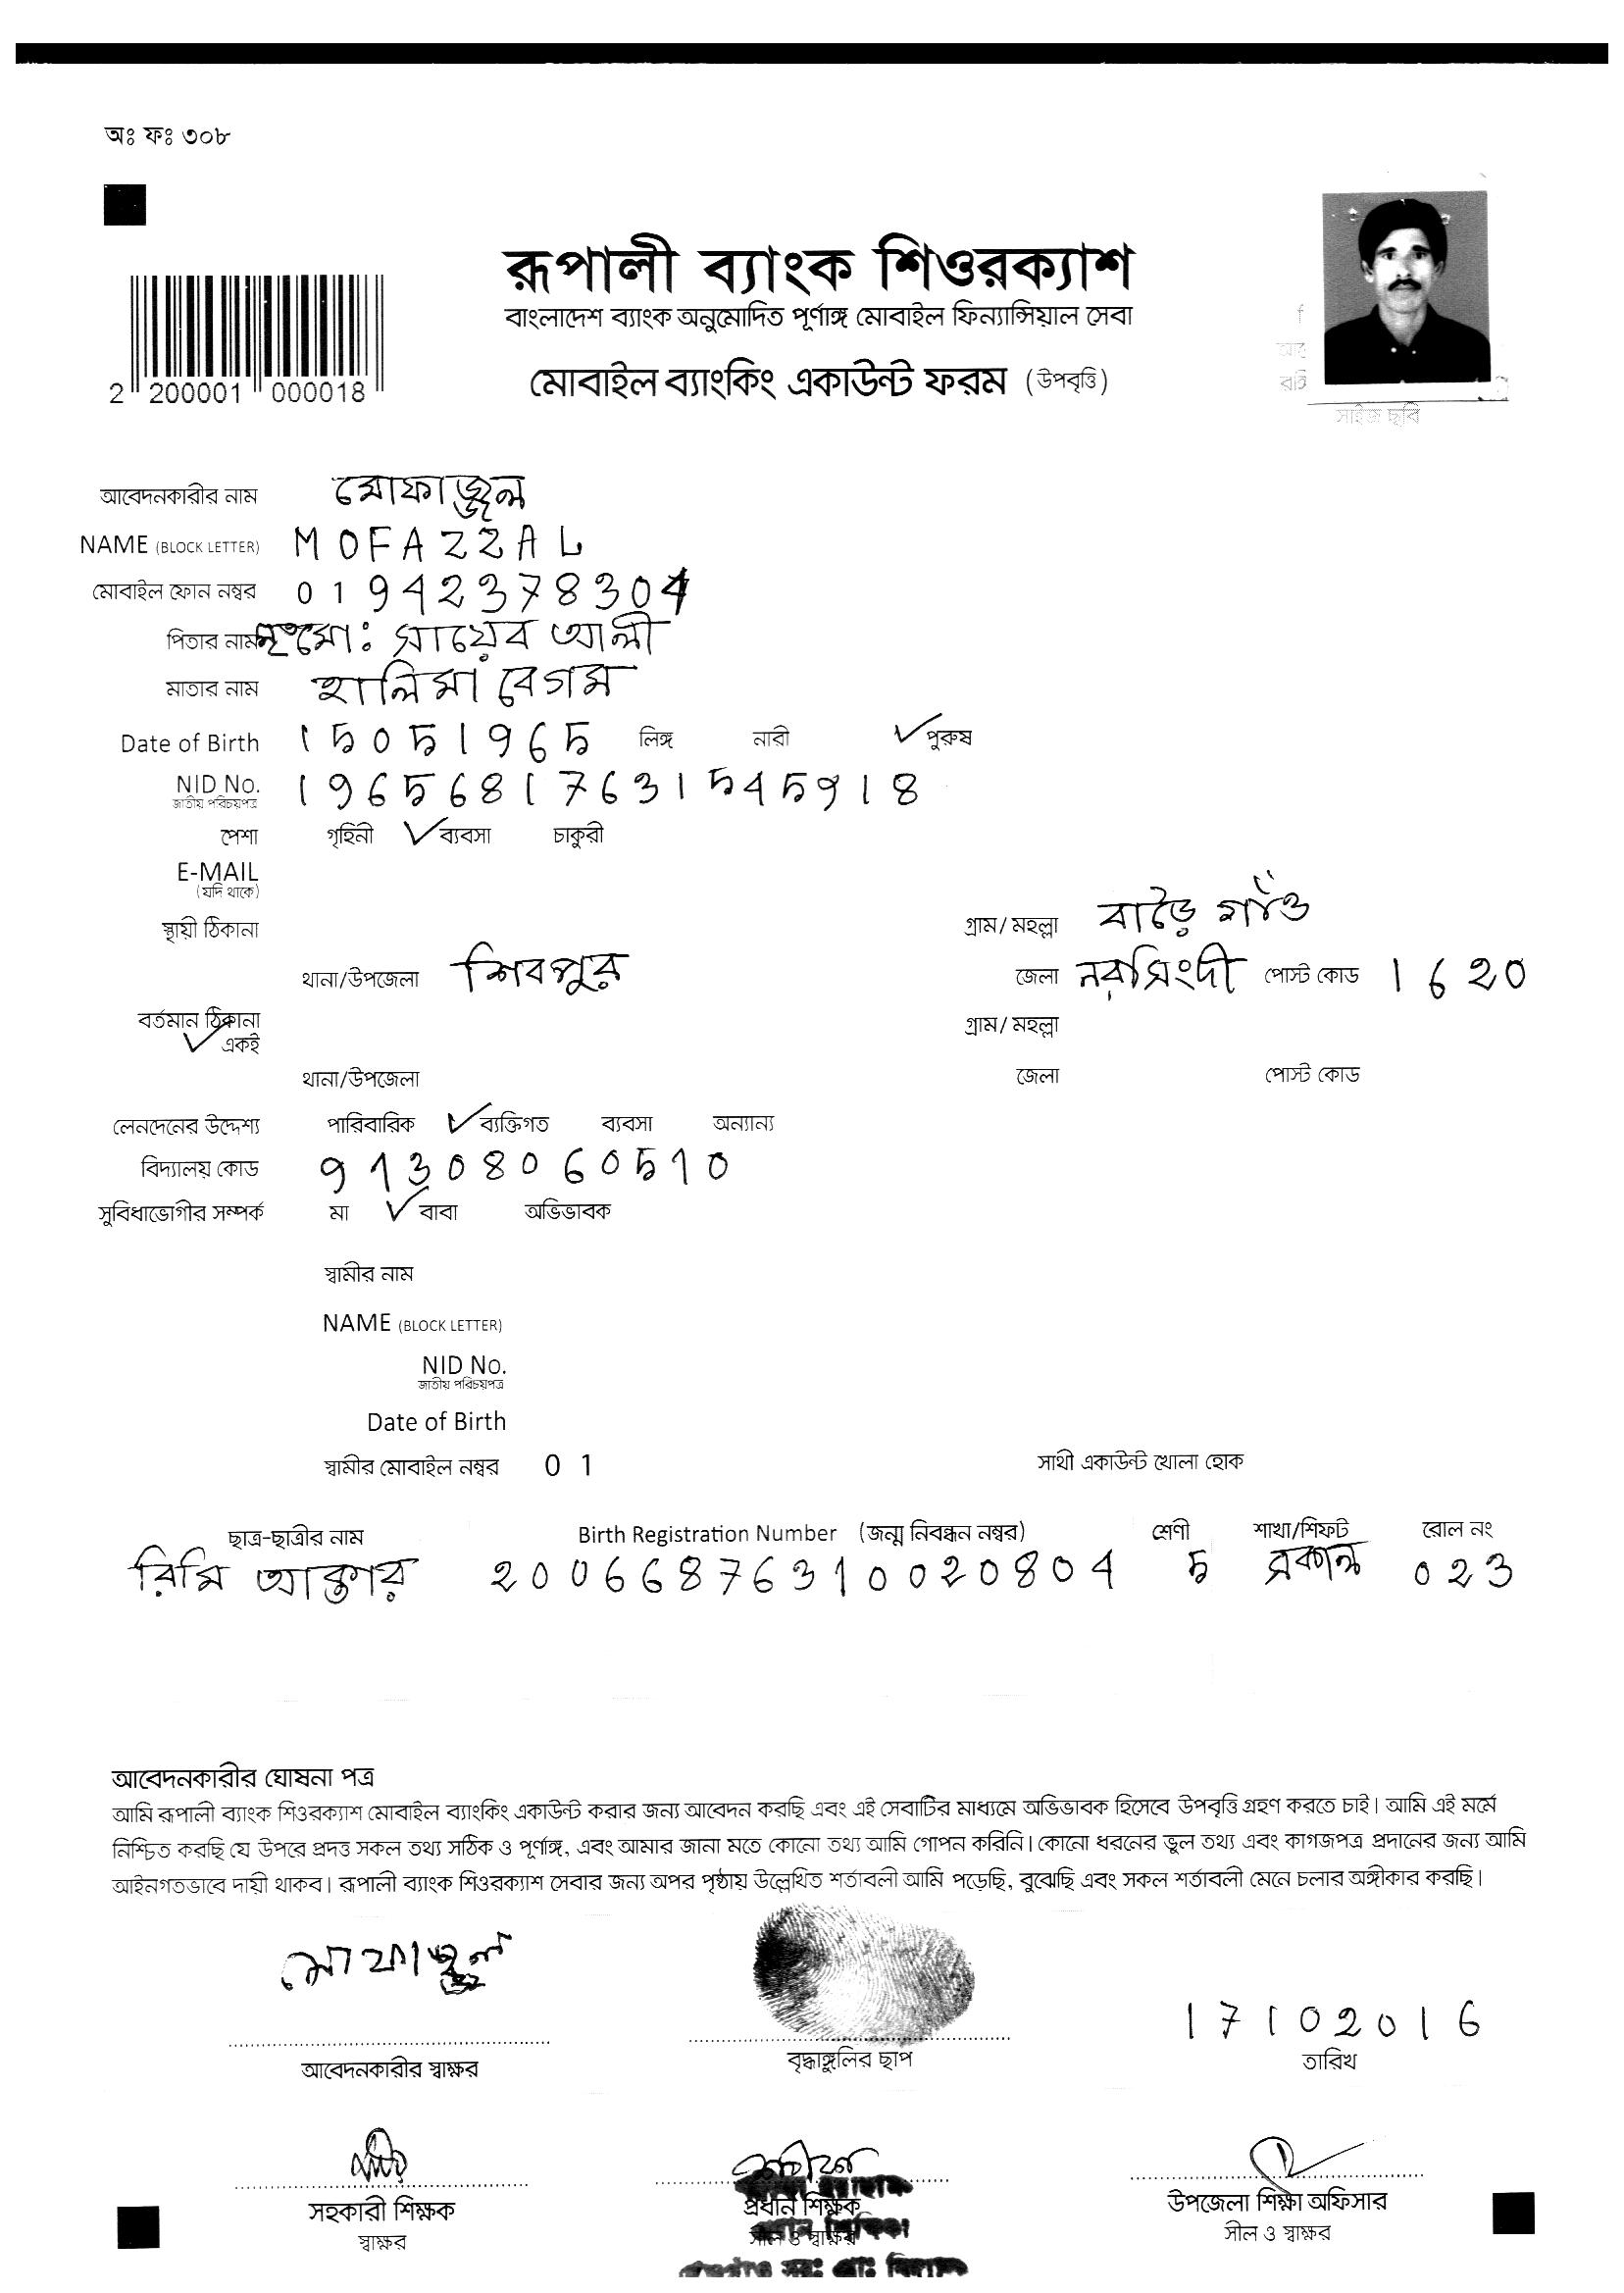 অঃ ফঃ ৩০৮
রূপালী ব্যাংক শিওরক্যাশ
বাংলাদেশ ব্যাংক অনুমোদিত পূর্ণাঙ্গ মোবাইল ফিন্যান্সিয়াল সেবা
মোবাইল ব্যাংকিং একাউন্ট ফরম (উপবৃত্তি)
2 200001 000018
সাইজ ছবি
আবেদনকারীর নাম মোফাজ্জল
NAME (BLOCK LETTER) MOFAZZAL
মোবাইল ফোন নম্বর 01942378304
পিতার নাম মৃত মো: সায়েব আলী
মাতার নাম হালিমা বেগম
Date of Birth 15051965 লিঙ্গ নারী পুরুষ
NID No. 19656817631545918
জাতীয় পরিচয়পত্র
পেশা গৃহিনী ব্যবসা চাকুরী
E-MAIL
(যদি থাকে)
স্থায়ী ঠিকানা গ্রাম/ মহল্লা বাড়ৈ গাঁও
থানা/উপজেলা শিবপুর জেলা নরসিংদী পোস্ট কোড 1620
বর্তমান ঠিকানা গ্রাম/ মহল্লা
একই
থানা/উপজেলা জেলা পোস্ট কোড
লেনদেনের উদ্দেশ্য পারিবারিক ব্যক্তিগত ব্যবসা অন্যান্য
বিদ্যালয় কোড 91308060510
সুবিধাভোগীর সম্পর্ক মা বাবা অভিভাবক
স্বামীর নাম
NAME (BLOCK LETTER)
NID No.
জাতীয় পরিচয়পত্র
Date of Birth
স্বামীর মোবাইল নম্বর 01 সাথী একাউন্ট খোলা হোক
ছাত্র-ছাত্রীর নাম Birth Registration Number (জন্ম নিবন্ধন নম্বর) শ্রেণী শাখা/শিফট রোল নং
রিমি আক্তার 20066876310020804 5 023
আবেদনকারীর ঘোষনা পত্র
আমি রূপালী ব্যাংক শিওরক্যাশ মোবাইল ব্যাংকিং একাউন্ট করার জন্য আবেদন করছি এবং এই সেবাটির মাধ্যমে অভিভাবক হিসেবে উপবৃত্তি গ্রহণ করতে চাই। আমি এই মর্মে
নিশ্চিত করছি যে উপরে প্রদত্ত সকল তথ্য সঠিক ও পূর্ণাঙ্গ, এবং আমার জানা মতে কোনো তথ্য আমি গোপন করিনি। কোনো ধরনের ভুল তথ্য এবং কাগজপত্র প্রদানের জন্য আমি
আইনগতভাবে দায়ী থাকব। রূপালী ব্যাংক শিওরক্যাশ সেবার জন্য অপর পৃষ্ঠায় উল্লেখিত শর্তাবলী আমি পড়েছি, বুঝেছি এবং সকল শর্তাবলী মেনে চলার অঙ্গীকার করছি।
মোফাজ্জল
17102016
আবেদনকারীর স্বাক্ষর বৃদ্ধাঙ্গুলির ছাপ তারিখ
সহকারী শিক্ষক প্রধান শিক্ষক উপজেলা শিক্ষা অফিসার
স্বাক্ষর সীল ও স্বাক্ষর সীল ও স্বাক্ষর